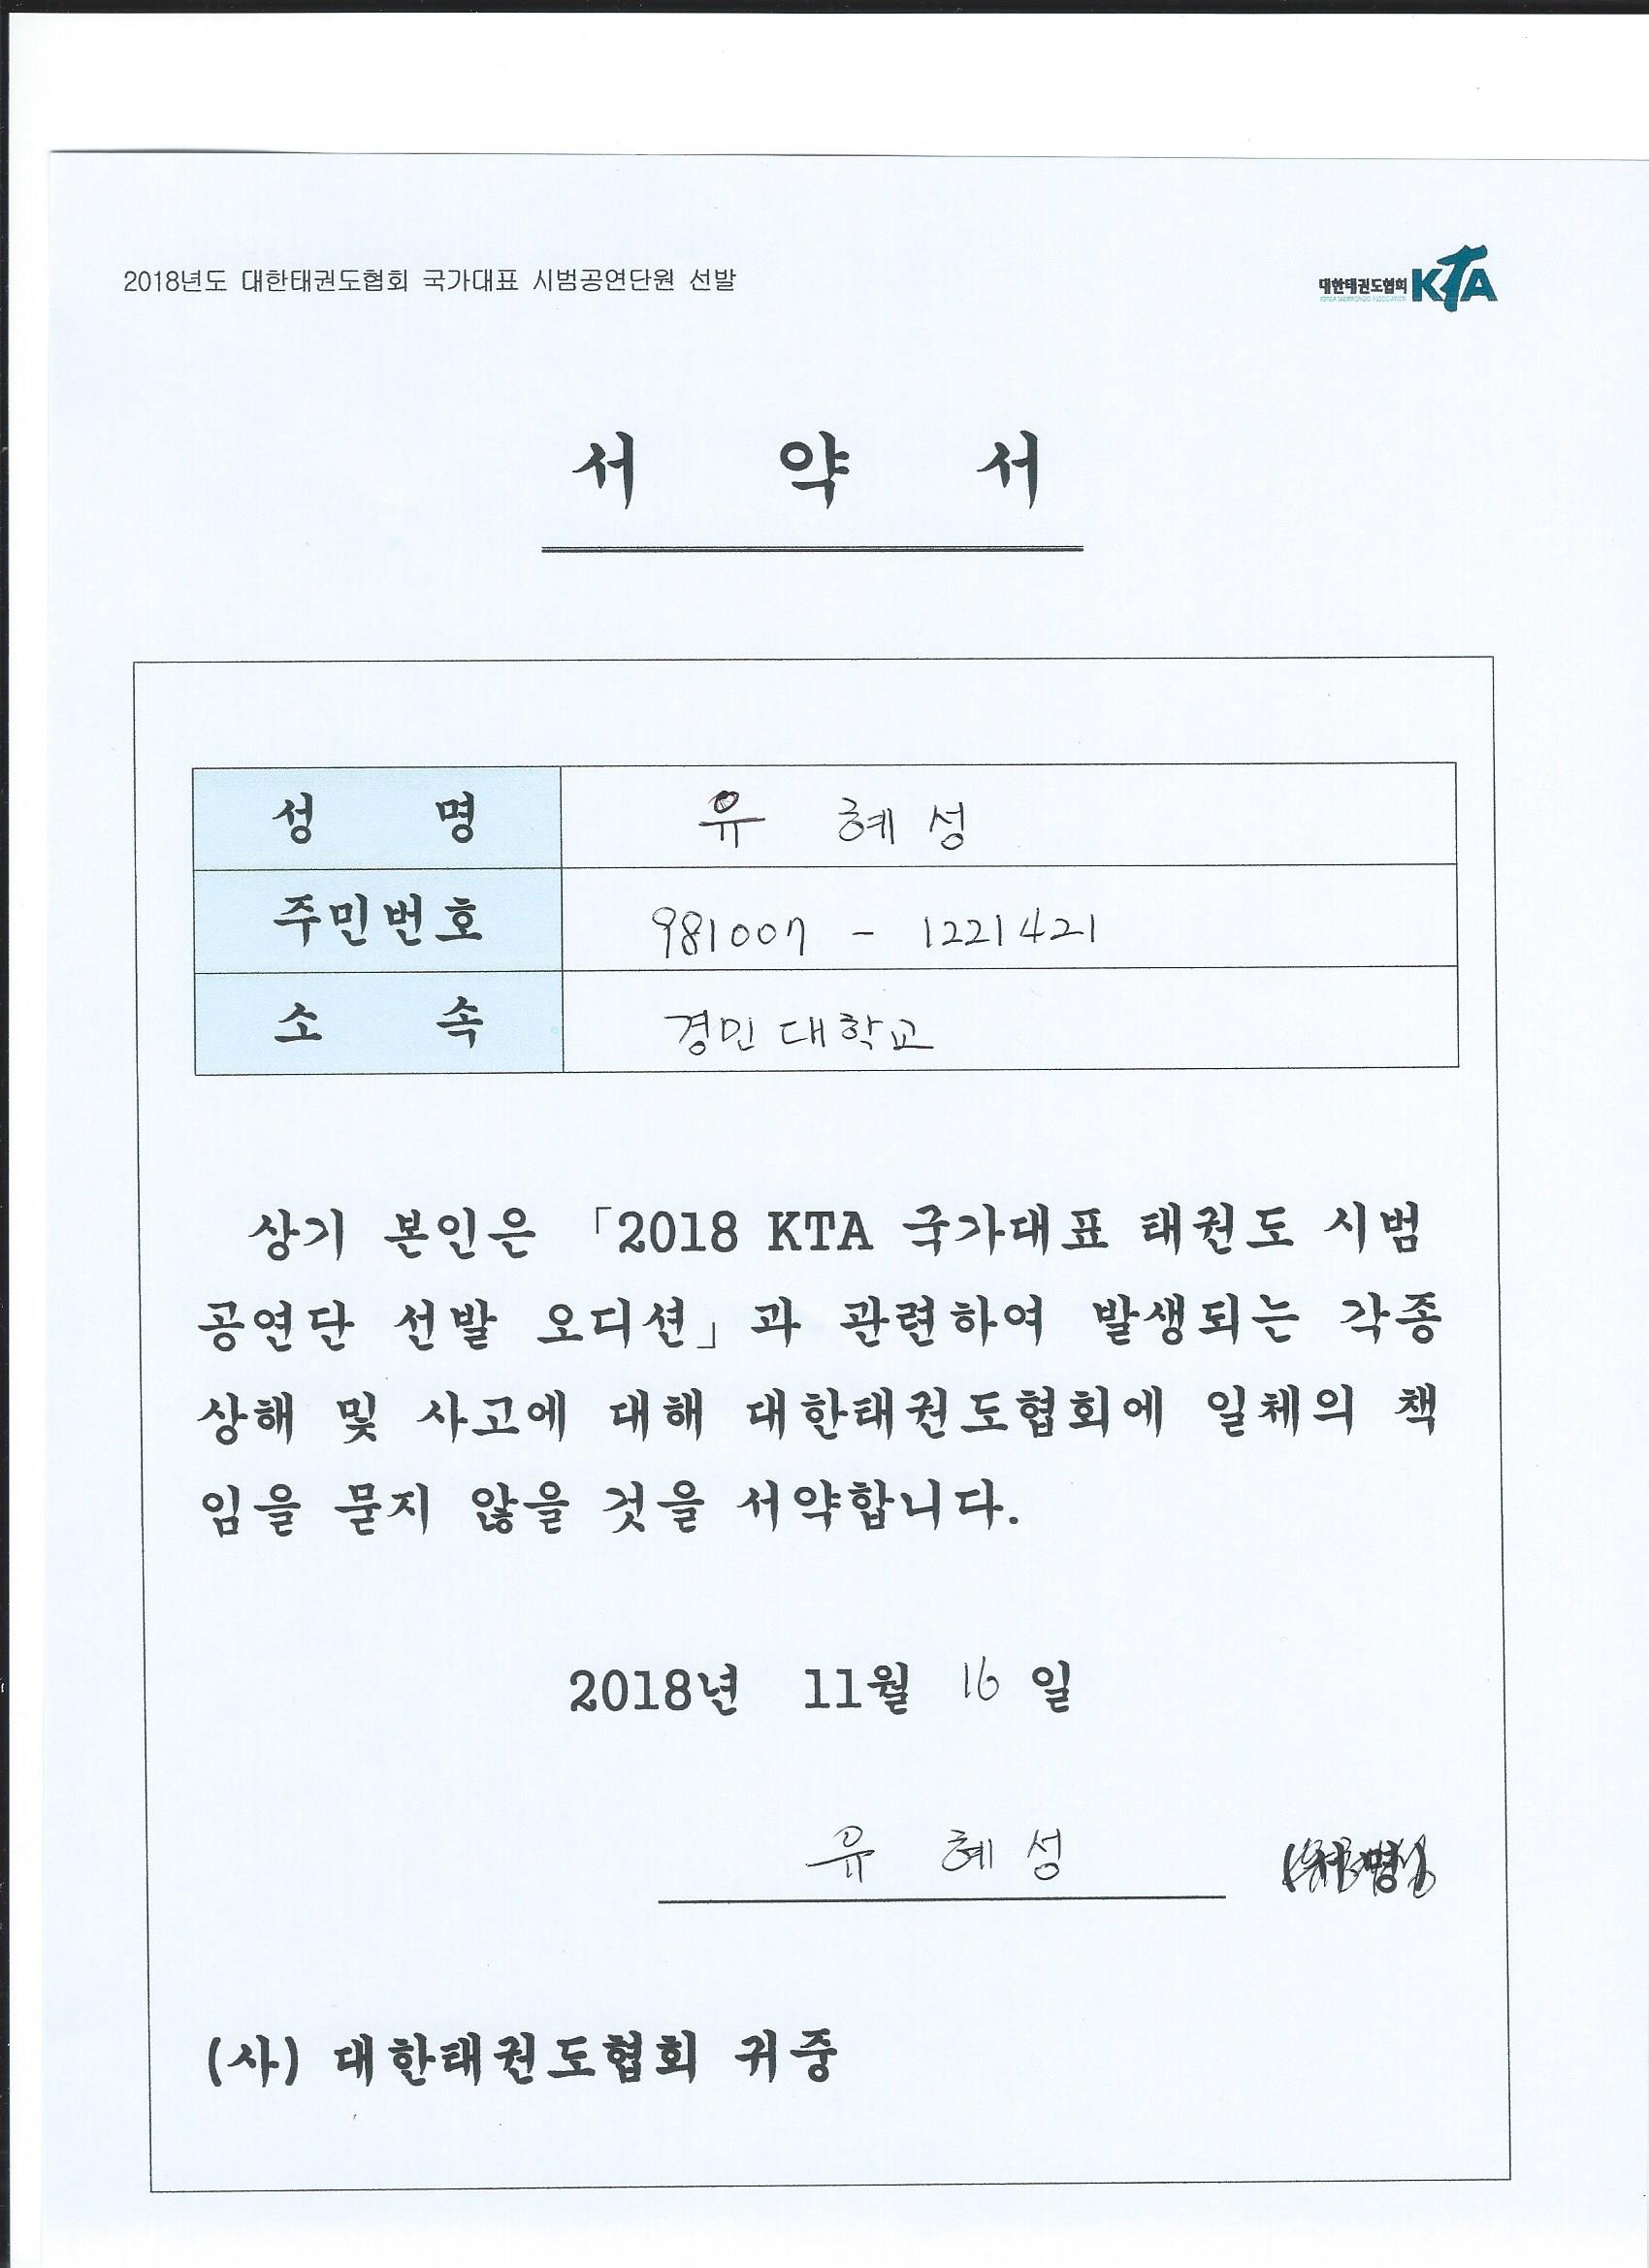 2018년도 대한태권도협회 국가대표 시범공연단원 선발
대한태권도협회 KTA
KOREA TAEKWONDO ASSOCIATION
서 약 서
성 명 유 혜성
주민번호 981007 - 1221421
소 속 경민대학교
상기 본인은 「2018 KTA 국가대표 태권도 시범
공연단 선발 오디션」과 관련하여 발생되는 각종
상해 및 사고에 대해 대한태권도협회에 일체의 책
임을 묻지 않을 것을 서약합니다.
2018년 11월 16 일
유 혜성 (서명)
(사) 대한태권도협회 귀중